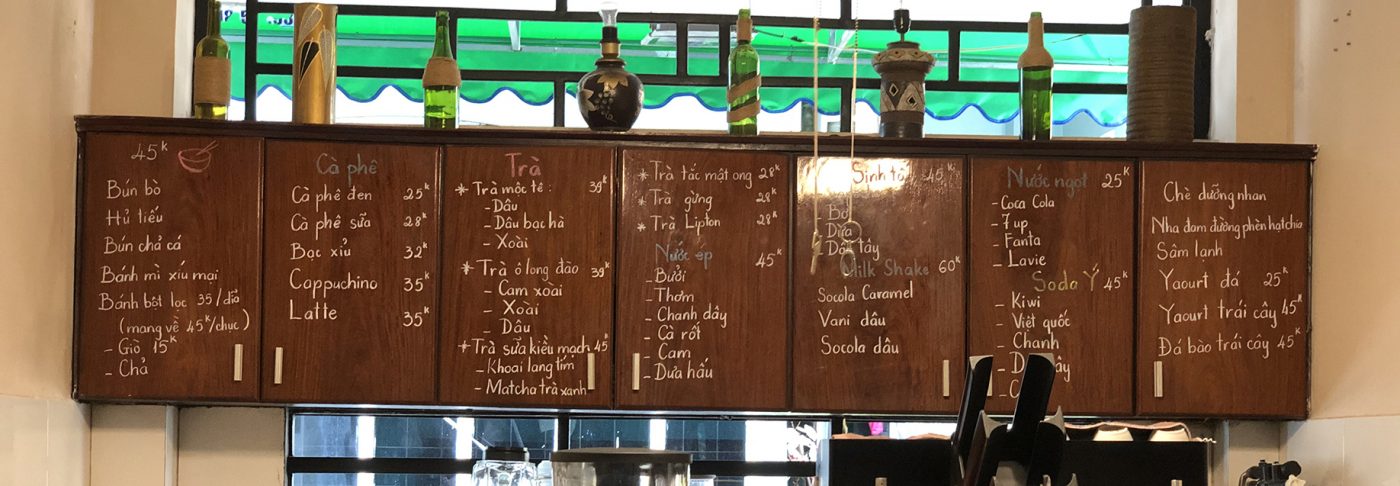 45k
Bún bò
Hủ tiếu
Bún chả cá
Bánh mì xíu mại
Bánh bột lọc 35/dĩa
(mang về 45k/chục)
- Giò 15k
- Chả
Cà phê
Cà phê đen 25k
Cà phê sữa 28k
Bạc xỉu 32k
Cappuchino 35k
Latte 35k
Trà
* Trà mộc tê: 39k
- Dâu
- Dâu bạc hà
- Xoài
* Trà ô long đào 39k
- Cam xoài
- Xoài
- Dâu
* Trà sữa kiều mạch 45k
- Khoai lang tím
- Matcha trà xanh
* Trà tắc mật ong 28k
* Trà gừng 28k
* Trà Lipton 28k
Nước ép 45k
- Bưởi
- Thơm
- Chanh dây
- Cà rốt
- Cam
- Dưa hấu
Sinh tố 45k
- Bơ
- Dừa
- Dâu tây
Milk Shake 60k
Socola Caramel
Vani dâu
Socola dâu
Nước ngọt 25k
- Coca Cola
- 7up
- Fanta
- Lavie
Soda Ý 45k
- Kiwi
- Việt quốc
- Chanh
Chè dưỡng nhan
Nha đam đường phèn hạt chia
Sâm lạnh
Yaourt đá 25k
Yaourt trái cây 45k
Đá bào trái cây 45k